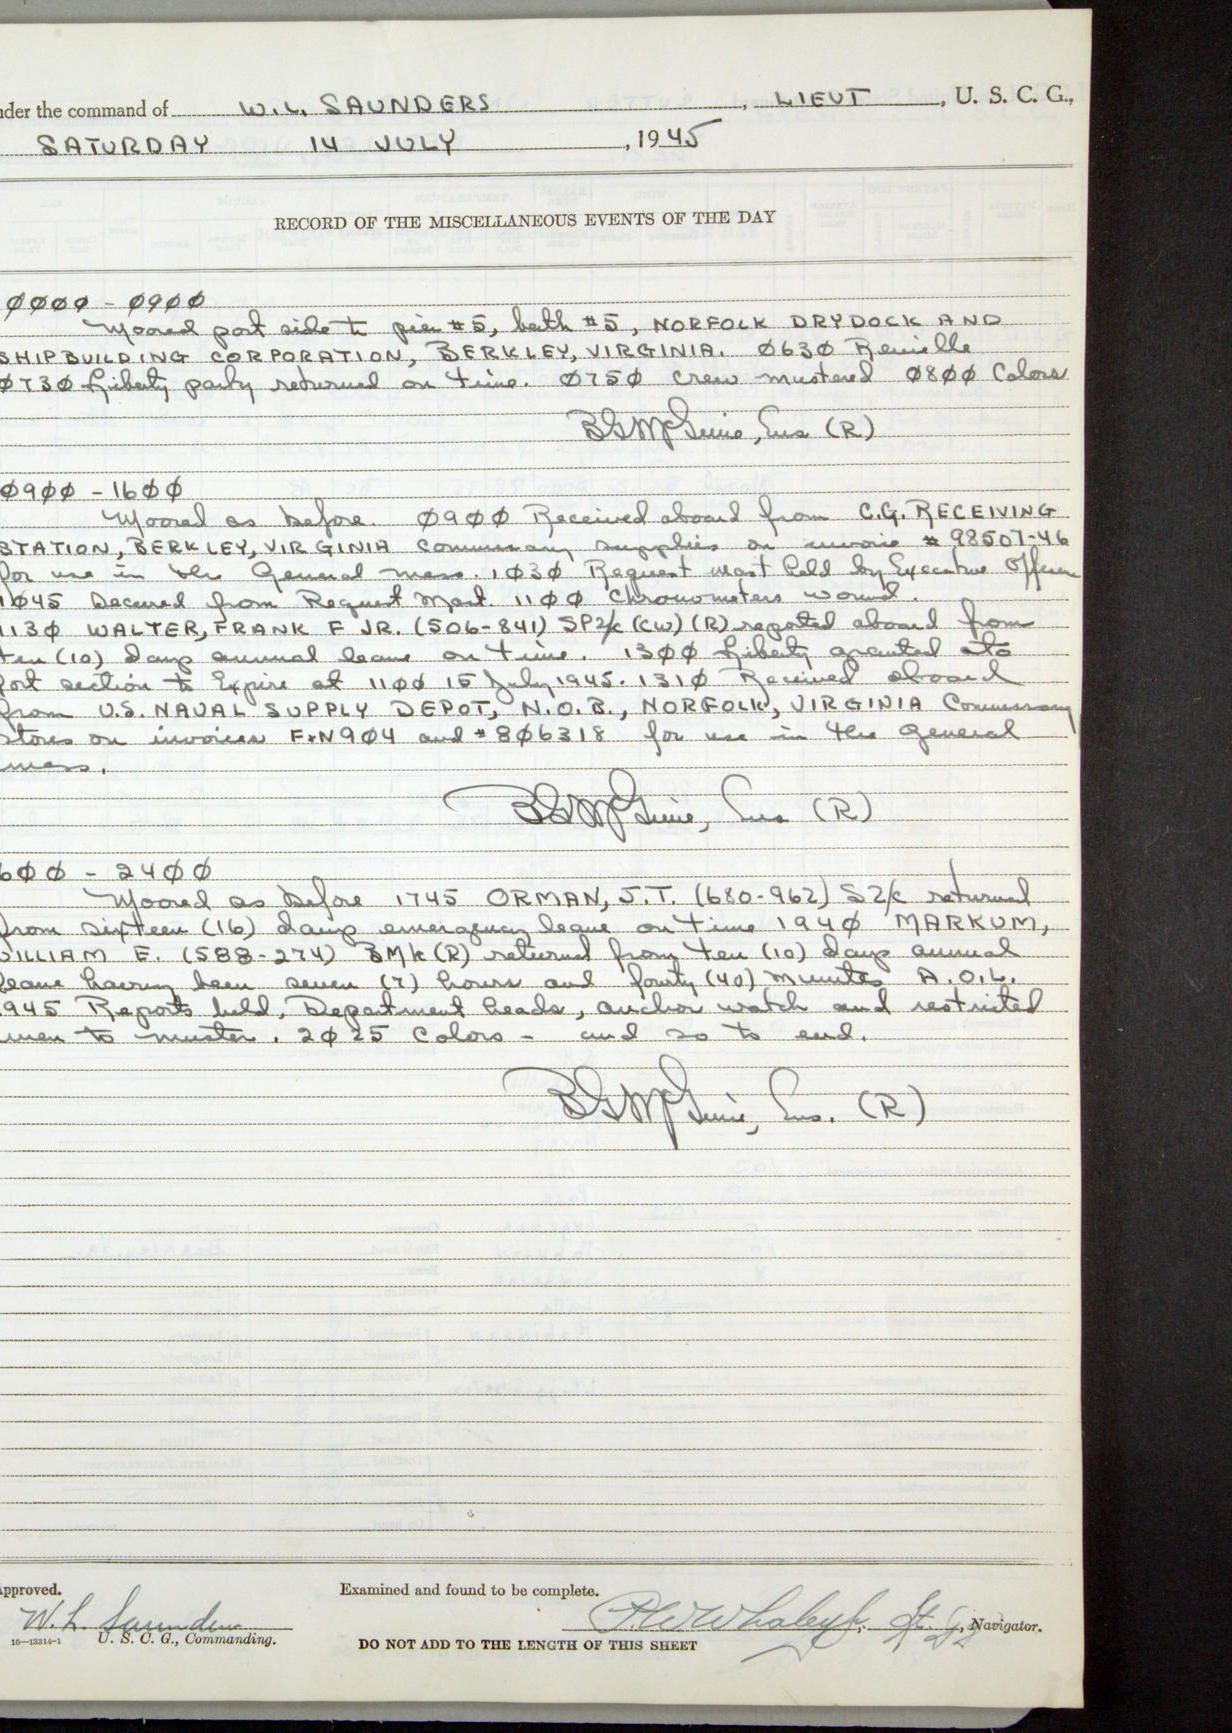 nder the command of W. L. SAUNDERS, LIEUT, U. S. C. G.,
SATURDAY 14 JULY, 1945
RECORD OF THE MISCELLANEOUS EVENTS OF THE DAY
0000 - 0900
Moored port side to pier #5, berth #5, NORFOLK DRYDOCK AND
SHIPBUILDING CORPORATION, BERKLEY, VIRGINIA. 0630 Reveille
0730 Liberty party returned on time. 0750 crew mustered 0800 Colors
BG McGuire, Ens (R)
0900 - 1600
Moored as before. 0900 Received aboard from C.G. RECEIVING
STATION, BERKLEY, VIRGINIA commissary supplies on invoice # 98507-46
for use in the General mess. 1030 Request mast held by Executive Officer
1045 Secured from Request Mast. 1100 Chronometers wound.
1130 WALTER, FRANK F JR. (506-841) SP2/c (CW) (R) reported aboard from
ten (10) days annual leave on time. 1300 Liberty granted to
port section to Expire at 1100 15 July 1945. 1310 Received aboard
from U.S. NAVAL SUPPLY DEPOT, N.O.B., NORFOLK, VIRGINIA Commissary
stores on invoices F+N904 and #806318 for use in the general
mess.
BG McGuire, Ens (R)
600 - 2400
Moored as before 1745 ORMAN, J.T. (680-962) S2/c returned
from sixteen (16) days emergency leave on time 1940 MARKUM,
WILLIAM E. (588-274) BMk (R) returned from ten (10) days annual
leave having been seven (7) hours and fourty (40) minutes A.O.L.
1945 Reports held, Department heads, anchor watch and restricted
men to muster. 2025 Colors - and so to end.
BG McGuire, Ens. (R)
Approved.
Examined and found to be complete.
W. L. Saunders
P.W. Whaley Jr., Lt. Jg, Navigator.
16—13314-1 U. S. C. G., Commanding.
DO NOT ADD TO THE LENGTH OF THIS SHEET